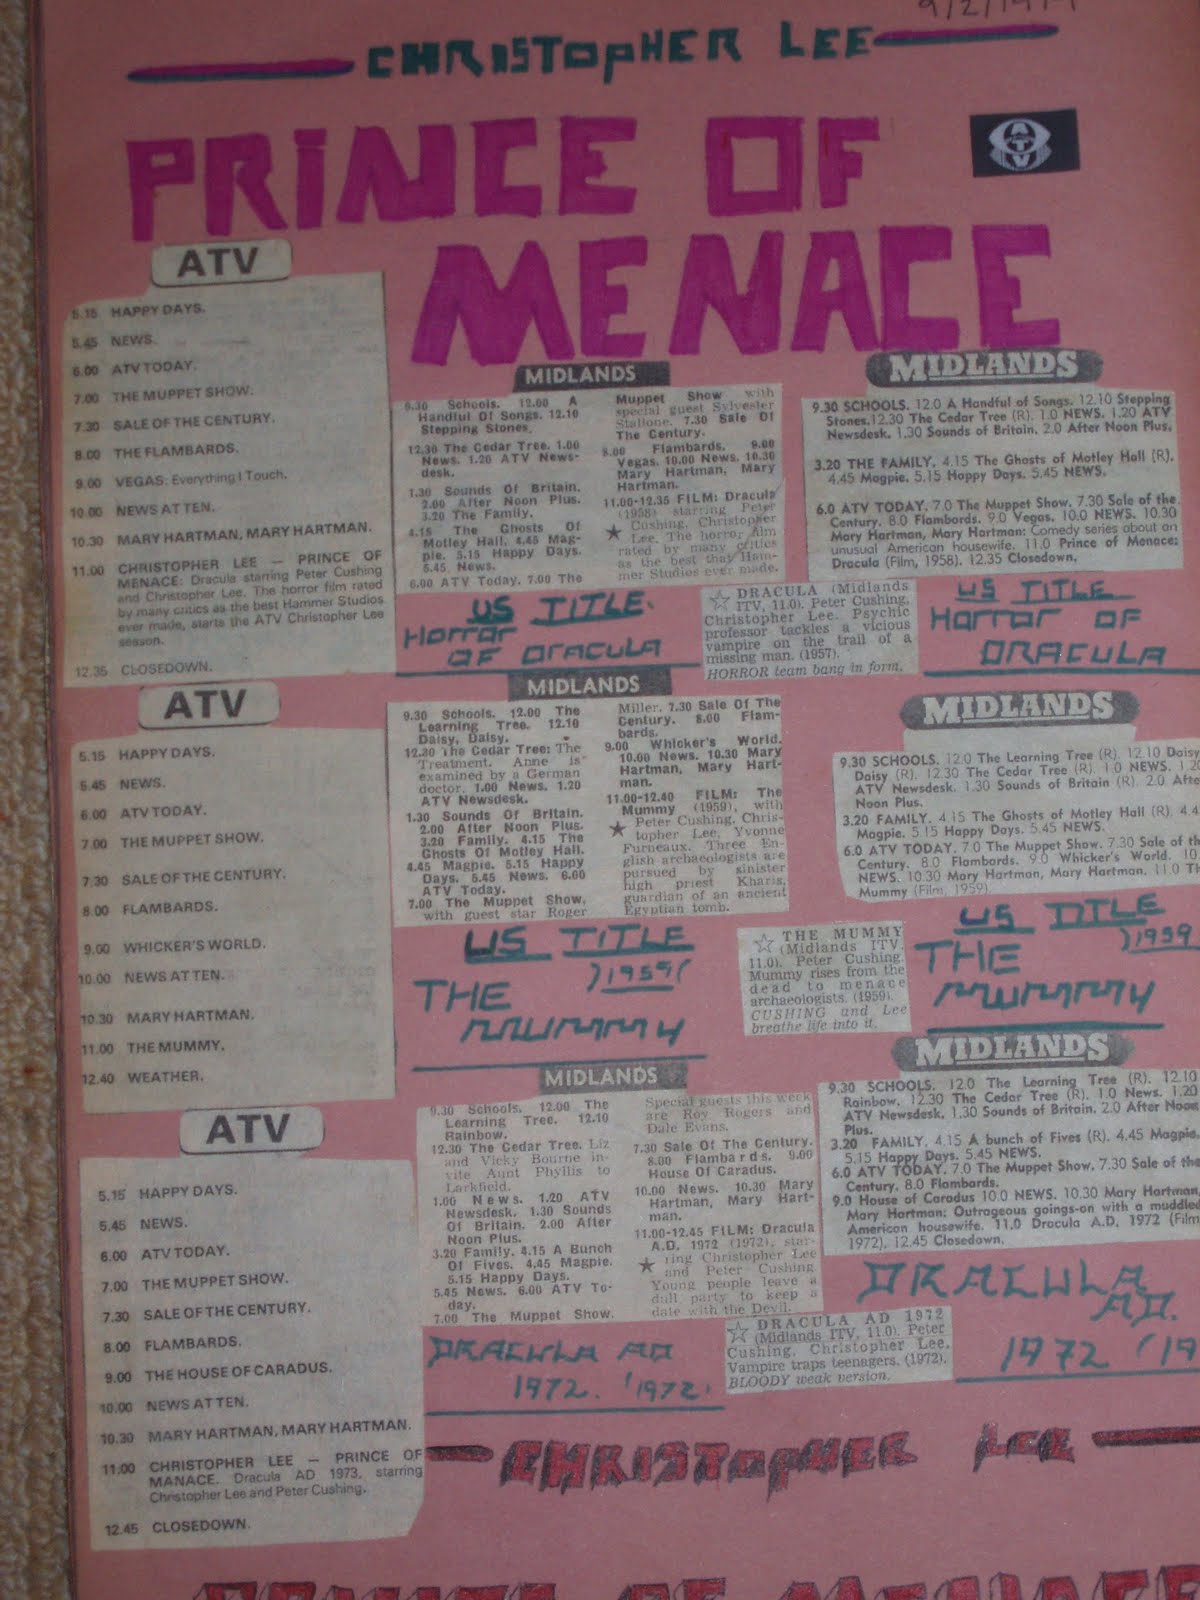 9/2/1979
CHRISTOPHER LEE
PRINCE OF
MENACE
ATV
ATV
5.15 HAPPY DAYS.
5.45 NEWS.
6.00 ATV TODAY.
7.00 THE MUPPET SHOW.
7.30 SALE OF THE CENTURY.
8.00 THE FLAMBARDS.
9.00 VEGAS: Everything I Touch.
10.00 NEWS AT TEN.
10.30 MARY HARTMAN, MARY HARTMAN.
11.00 CHRISTOPHER LEE — PRINCE OF
MENACE: Dracula starring Peter Cushing
and Christopher Lee. The horror film rated
by many critics as the best Hammer Studios
ever made, starts the ATV Christopher Lee
season.
12.35 CLOSEDOWN.
MIDLANDS
9.30 Schools. 12.00 A
Handful Of Songs. 12.10
Stepping Stones.
12.30 The Cedar Tree. 1.00
News. 1.20 ATV News-
desk.
1.30 Sounds Of Britain.
2.00 After Noon Plus.
3.20 The Family.
4.15 The Ghosts Of
Motley Hall. 4.45 Mag-
pie. 5.15 Happy Days.
5.45 News.
6.00 ATV Today. 7.00 The
Muppet Show with
special guest Sylvester
Stallone. 7.30 Sale Of
The Century.
8.00 Flambards. 9.00
Vegas. 10.00 News. 10.30
Mary Hartman, Mary
Hartman.
11.00-12.35 FILM: Dracula
(1958) starring Peter
Cushing, Christopher
Lee. The horror film
rated by many critics
as the best that Ham-
mer Studios ever made.
MIDLANDS
9.30 SCHOOLS. 12.0 A Handful of Songs. 12.10 Stepping
Stones. 12.30 The Cedar Tree (R). 1.0 NEWS. 1.20 ATV
Newsdesk. 1.30 Sounds of Britain. 2.0 After Noon Plus.
3.20 THE FAMILY. 4.15 The Ghosts of Motley Hall (R).
4.45 Magpie. 5.15 Happy Days. 5.45 NEWS.
6.0 ATV TODAY. 7.0 The Muppet Show. 7.30 Sale of the
Century. 8.0 Flambards. 9.0 Vegas. 10.0 NEWS. 10.30
Mary Hartman, Mary Hartman: Comedy series about an
unusual American housewife. 11.0 Prince of Menace:
Dracula (Film, 1958). 12.35 Closedown.
US TITLE.
Horror
OF DRACULA
DRACULA (Midlands
ITV, 11.0). Peter Cushing,
Christopher Lee. Psychic
professor tackles a vicious
vampire on the trail of a
missing man. (1957).
HORROR team bang in form.
US TITLE
HORROR OF
DRACULA
ATV
5.15 HAPPY DAYS.
5.45 NEWS.
6.00 ATV TODAY.
7.00 THE MUPPET SHOW.
7.30 SALE OF THE CENTURY.
8.00 FLAMBARDS.
9.00 WHICKER'S WORLD.
10.00 NEWS AT TEN.
10.30 MARY HARTMAN.
11.00 THE MUMMY.
12.40 WEATHER.
MIDLANDS
9.30 Schools. 12.00 The
Learning Tree. 12.10
Daisy, Daisy.
12.30 The Cedar Tree: The
Treatment. Anne is
examined by a German
doctor. 1.00 News. 1.20
ATV Newsdesk.
1.30 Sounds Of Britain.
2.00 After Noon Plus.
3.20 Family. 4.15 The
Ghosts Of Motley Hall.
4.45 Magpie. 5.15 Happy
Days. 5.45 News. 6.00
ATV Today.
7.00 The Muppet Show,
with guest star Roger
Miller. 7.30 Sale Of The
Century. 8.00 Flam-
bards.
9.00 Whicker's World.
10.00 News. 10.30 Mary
Hartman, Mary Hart-
man.
11.00-12.40 FILM: The
Mummy (1959), with
Peter Cushing, Chris-
topher Lee, Yvonne
Furneaux. Three En-
glish archaeologists are
pursued by sinister
high priest Kharis,
guardian of an ancient
Egyptian tomb.
MIDLANDS
9.30 SCHOOLS. 12.0 The Learning Tree (R). 12.10 Daisy
Daisy (R). 12.30 The Cedar Tree (R). 1.0 NEWS. 1.20
ATV Newsdesk. 1.30 Sounds of Britain (R). 2.0 Afte
Noon Plus.
3.20 FAMILY. 4.15 The Ghosts of Motley Hall (R). 4.4
Magpie. 5.15 Happy Days. 5.45 NEWS.
6.0 ATV TODAY. 7.0 The Muppet Show. 7.30 Sale of th
Century. 8.0 Flambards. 9.0 Whicker's World. 10
NEWS. 10.30 Mary Hartman, Mary Hartman. 11.0 Th
Mummy (Film, 1959).
US TITLE
)1959(
THE
MUMMY
THE MUMMY
(Midlands ITV,
11.0). Peter Cushing.
Mummy rises from the
dead to menace
archaeologists. (1959).
CUSHING and Lee
breathe life into it.
US TITLE
)1959
THE
MUMMY
ATV
5.15 HAPPY DAYS.
5.45 NEWS.
6.00 ATV TODAY.
7.00 THE MUPPET SHOW.
7.30 SALE OF THE CENTURY.
8.00 FLAMBARDS.
9.00 THE HOUSE OF CARADUS.
10.00 NEWS AT TEN.
10.30 MARY HARTMAN, MARY HARTMAN.
11.00 CHRISTOPHER LEE — PRINCE OF
MANACE. Dracula AD 1973, starring
Christopher Lee and Peter Cushing.
12.45 CLOSEDOWN.
MIDLANDS
9.30 Schools. 12.00 The
Learning Tree. 12.10
Rainbow.
12.30 The Cedar Tree. Liz
and Vicky Bourne in-
vite Aunt Phyllis to
Larkfield.
1.00 News. 1.20 ATV
Newsdesk. 1.30 Sounds
Of Britain. 2.00 After
Noon Plus.
3.20 Family. 4.15 A Bunch
Of Fives. 4.45 Magpie.
5.15 Happy Days.
5.45 News. 6.00 ATV To-
day.
7.00 The Muppet Show.
Special guests this week
are Roy Rogers and
Dale Evans.
7.30 Sale Of The Century.
8.00 Flambards. 9.00
House Of Caradus.
10.00 News. 10.30 Mary
Hartman, Mary Hart-
man.
11.00-12.45 FILM: Dracula
A.D. 1972 (1972), star-
ring Christopher Lee
and Peter Cushing.
Young people leave a
dull party to keep a
date with the Devil.
MIDLANDS
9.30 SCHOOLS. 12.0 The Learning Tree (R). 12.10
Rainbow. 12.30 The Cedar Tree (R). 1.0 News. 1.20
ATV Newsdesk. 1.30 Sounds of Britain. 2.0 After Noon
Plus.
3.20 FAMILY. 4.15 A bunch of Fives (R). 4.45 Magpie.
5.15 Happy Days. 5.45 NEWS.
6.0 ATV TODAY. 7.0 The Muppet Show. 7.30 Sale of the
Century. 8.0 Flambards.
9.0 House of Caradus 10.0 NEWS. 10.30 Mary Hartman,
Mary Hartman: Outrageous goings-on with a muddled
American housewife. 11.0 Dracula A.D. 1972 (Film
1972). 12.45 Closedown.
DRACULA AD
1972. '1972'.
DRACULA AD 1972
(Midlands ITV, 11.0). Peter
Cushing, Christopher Lee.
Vampire traps teenagers. (1972).
BLOODY weak version.
DRACULA
AD.
1972 '19
CHRISTOPHER LEE
PRINCE OF MENACE